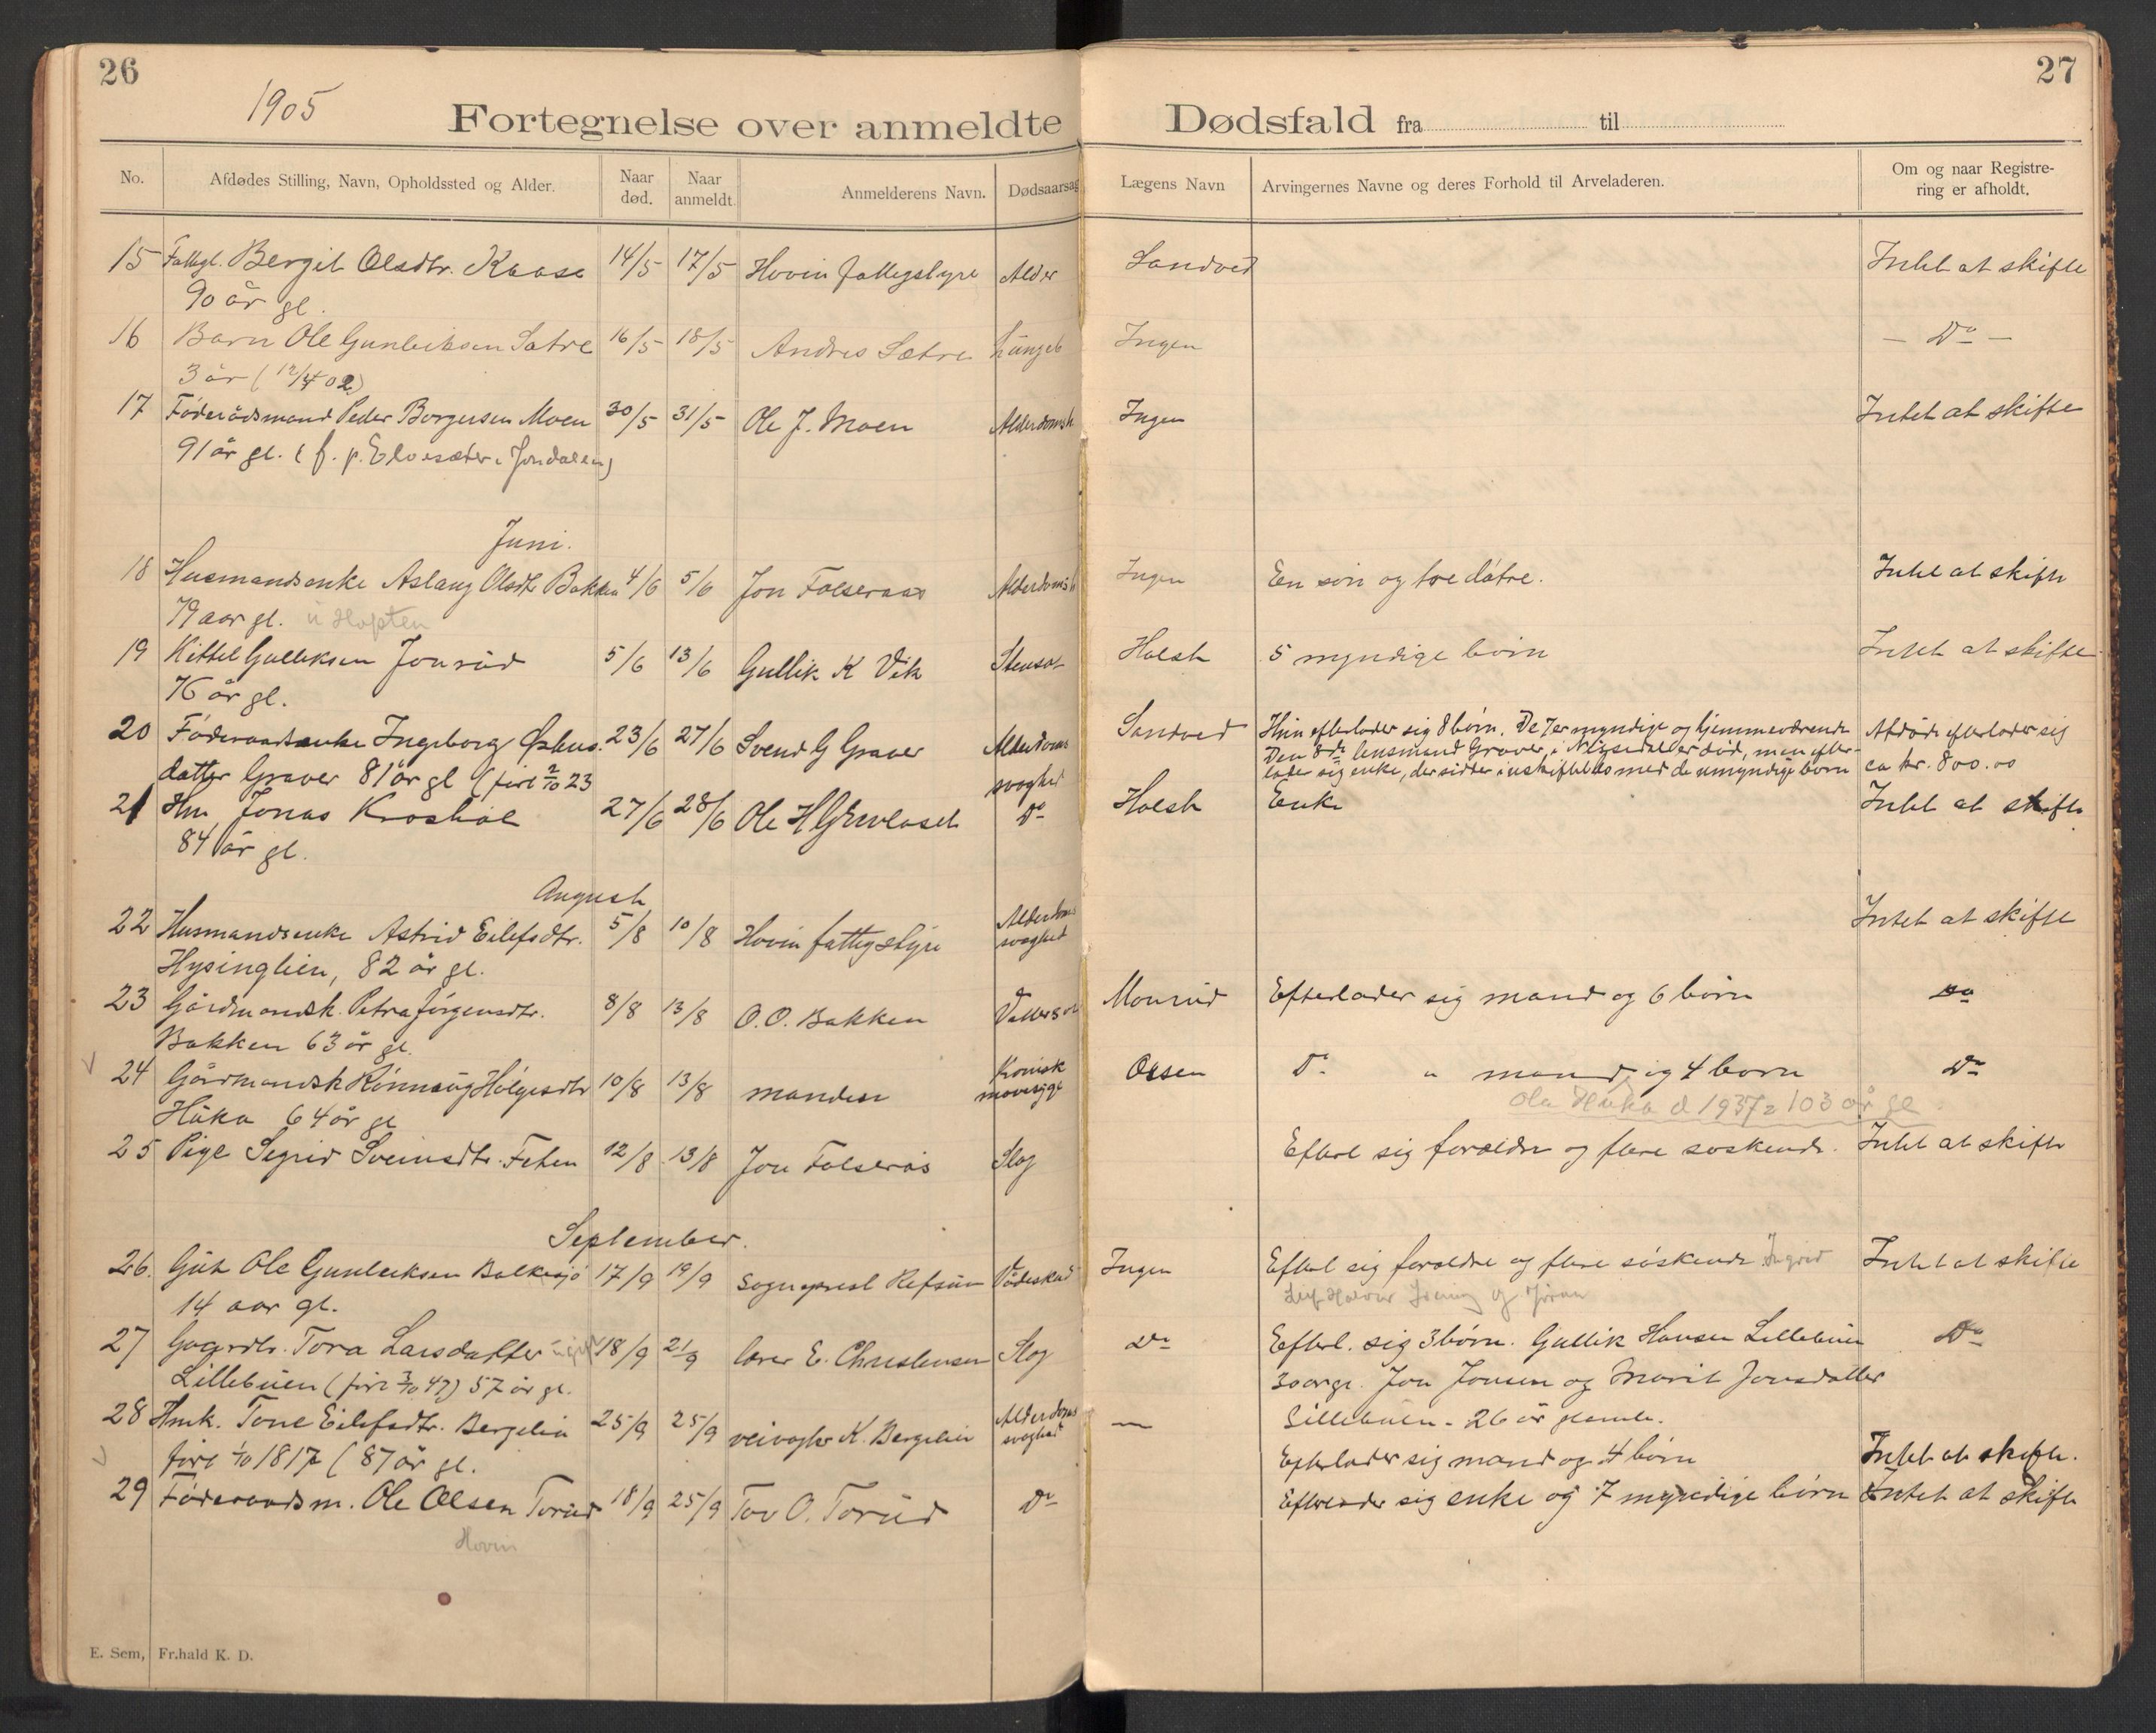 26
27
1905
Fortegnelse over anmeldte Dødsfald fra til
No. Afdødes Stilling, Navn, Opholdssted og Alder. Naar død. Naar anmeldt. Anmelderens Navn. Dødsaarsag Lægens Navn Arvingernes Navne og deres Forhold til Arveladeren. Om og naar Registrering er afholdt.
15 Fattigl. Bergit Olsdtr. Kaasa 14/5 17/5 Hovin fattigstyre Alder Sandved Intet at skifte
90 år gl.
16 Barn Ole Gunleiksen Sætre 16/5 18/5 Andres Sætre Ingen — Do —
3 år (12/4 02)
17 Föderådsmand Peder Borgersen Moen 30/5 31/5 Ole J. Moen Alderdomsh Ingen Intet at skifte
91 år gl. (f. p. Elvesæter i Jondalen)
Juni.
18 Husmandsenke Aslaug Olsdtr Bakken 4/6 5/6 Jon Folseraas Alderdomsh Ingen En sön og tre døtre. Intet at skifte
79 aar gl.
19 Kittel Gulleksen Jonsrud 5/6 13/6 Gullik K Vik Holst 5 myndige börn Intet at skifte
76 år gl.
20 Föderaadsenke Ingeborg Øshus- 23/6 27/6 Svend G Graver Alderdoms Sandved Hun efterlader sig 8 börn. De 7 er myndige og hjemmeværende Afdøde efterlader sig
datter Graver 81 år gl (föd 2/10 23 svaghed Den 8de lensmand Graver, i er død, men efter-
lader sig enke, der sidder i uskiftet bo med de umyndige börn ca kr. 800.00
21 Hm. Jonas 27/6 28/6 Ole H Do Holst Enke Intet at skifte
84 år gl.
August
22 Husmandsenke Astrid Eilefsdtr. 5/8 10/8 Hovin fattigstyre Alderdoms svaghed Intet at skifte
Hysinglien, 82 år gl.
23 Gårdmandsk. Petra Jörgensdtr. 8/8 13/8 O. O. Bakken Monrud Efterlader sig mand og 6 börn Do
Bakken 63 år gl.
24 Gårdmandsk Rönnaug Helgesdtr 10/8 13/8 manden Kronisk mavesyge Olsen Do " mand og 4 born Do
Håka 64 år gl
Ole Håka d 1937 = 103 år gl
25 Pige Sigrid Sveinsdtr. Feten 12/8 13/8 Jon Folserås Slag Efterl sig foreldre og flere søskende. Intet at skifte
September.
26. Gut Ole Gunleiksen Bolkesjö 17/9 19/9 sogneprest Refsum Vådeskud Ingen Efterl sig foreldre og flere söskende Ingrid Intet at skifte
14 aar gl.
27 Gaardtr. Tora Larsdatter ugift 18/9 21/9 lærer E. Christensen Slag Do Efterl. sig 3 börn. Gullik Hansen Lillebuen Do
Lillebuen (föd 3/10 47) 57 år gl. 30 aar gl. Jon Jonsen og Marit Jonsdatter
Lillebuen - 26 år gamle.
28 Hmk. Tone Eilefsdtr. Bergelia 25/9 25/9 veivogter K. Bergelien Alderdoms svaghed —
föd 1/10 1817 (87 år gl. Efterlader sig mand og 4 börn Intet at skifte.
29 Föderaadsm. Ole Olsen Torud 18/9 25/9 Tov O. Torud Do Efterlader sig enke og 7 myndige börn Intet at skifte
Hovin
E. Sem, Fr.hald K. D.